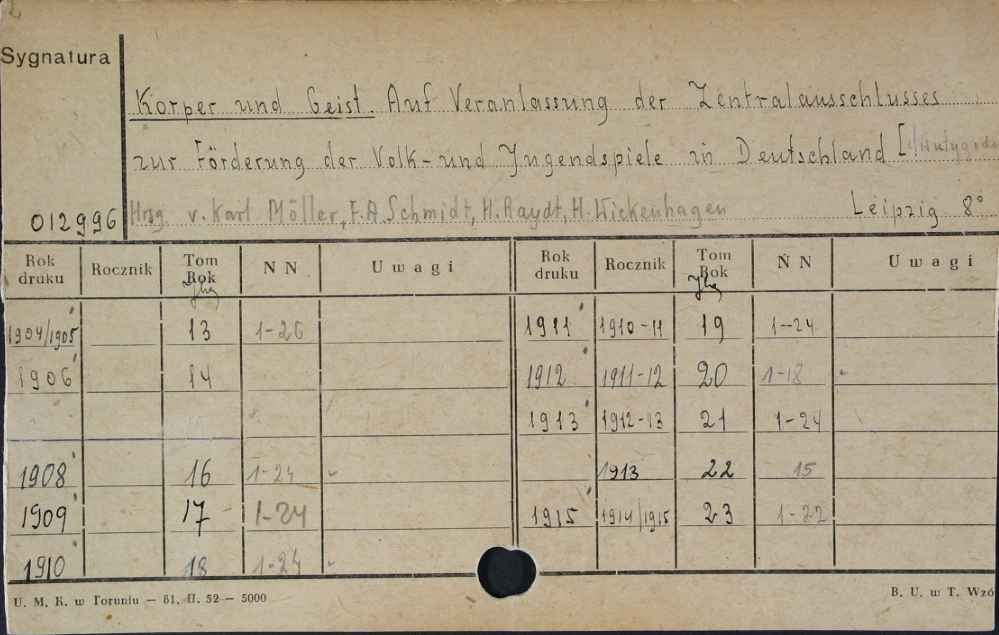 Sygnatura
Korper und Geist. Auf Veranlassung der Zentralausschlusses
zur Förderung der Volk- und Jugendspiele in Deutschland [!
012996 Hrsg v. Karl Möller, F.A. Schmidt, H. Raydt, H. Wickenhagen Leipzig 8°
Rok druku Rocznik Tom Rok Jhg N N Uwagi Rok druku Rocznik Tom Rok Jhg N N Uwagi
1904/1905 13 1-26 1911 1910-11 19 1-24
1906 14 1912 1911-12 20 1-18
1913 1912-13 21 1-24
1908 16 1-24 1913 22 15
1909 17 1-24 1915 1914/1915 23 1-22
1910 18 1-24
U. M. K. w Toruniu — 61, II. 52 — 5000 B. U. w T. Wzó